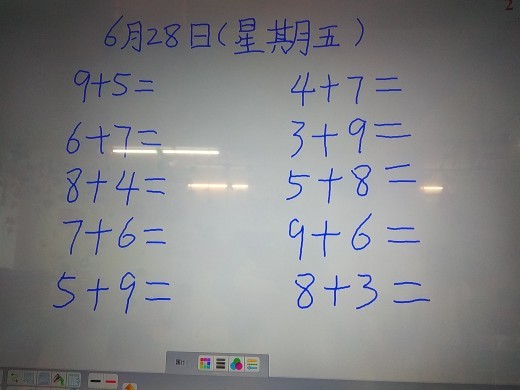 2
6月28日(星期五)
9+5= 4+7=
6+7= 3+9=
8+4= 5+8=
7+6= 9+6=
5+9= 8+3=